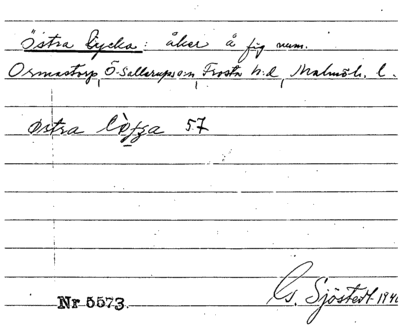 Östra lycka: åker å fig num.
Ormastorp, Ö. Sallerups sn, Frosta h:d, Malmöh. l.
östra 57
Nr 5573.
G. Sjöstedt. 1940